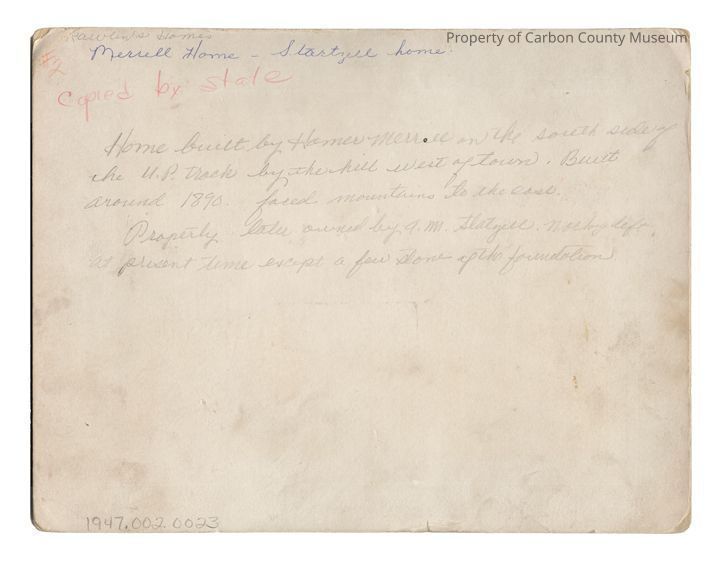 Rawlins Homes
Property of Carbon County Museum
Merrell Home - Startzell home.
#2
Copied by State
Home built by Homer Merrell on the south side of
the U.P. track by the hill west of town. Built
around 1890. faced mountains to the east.
Property later owned by J.M. Statzell. Nothing left
at present time except a few stone of the foundation
1947.002.0023